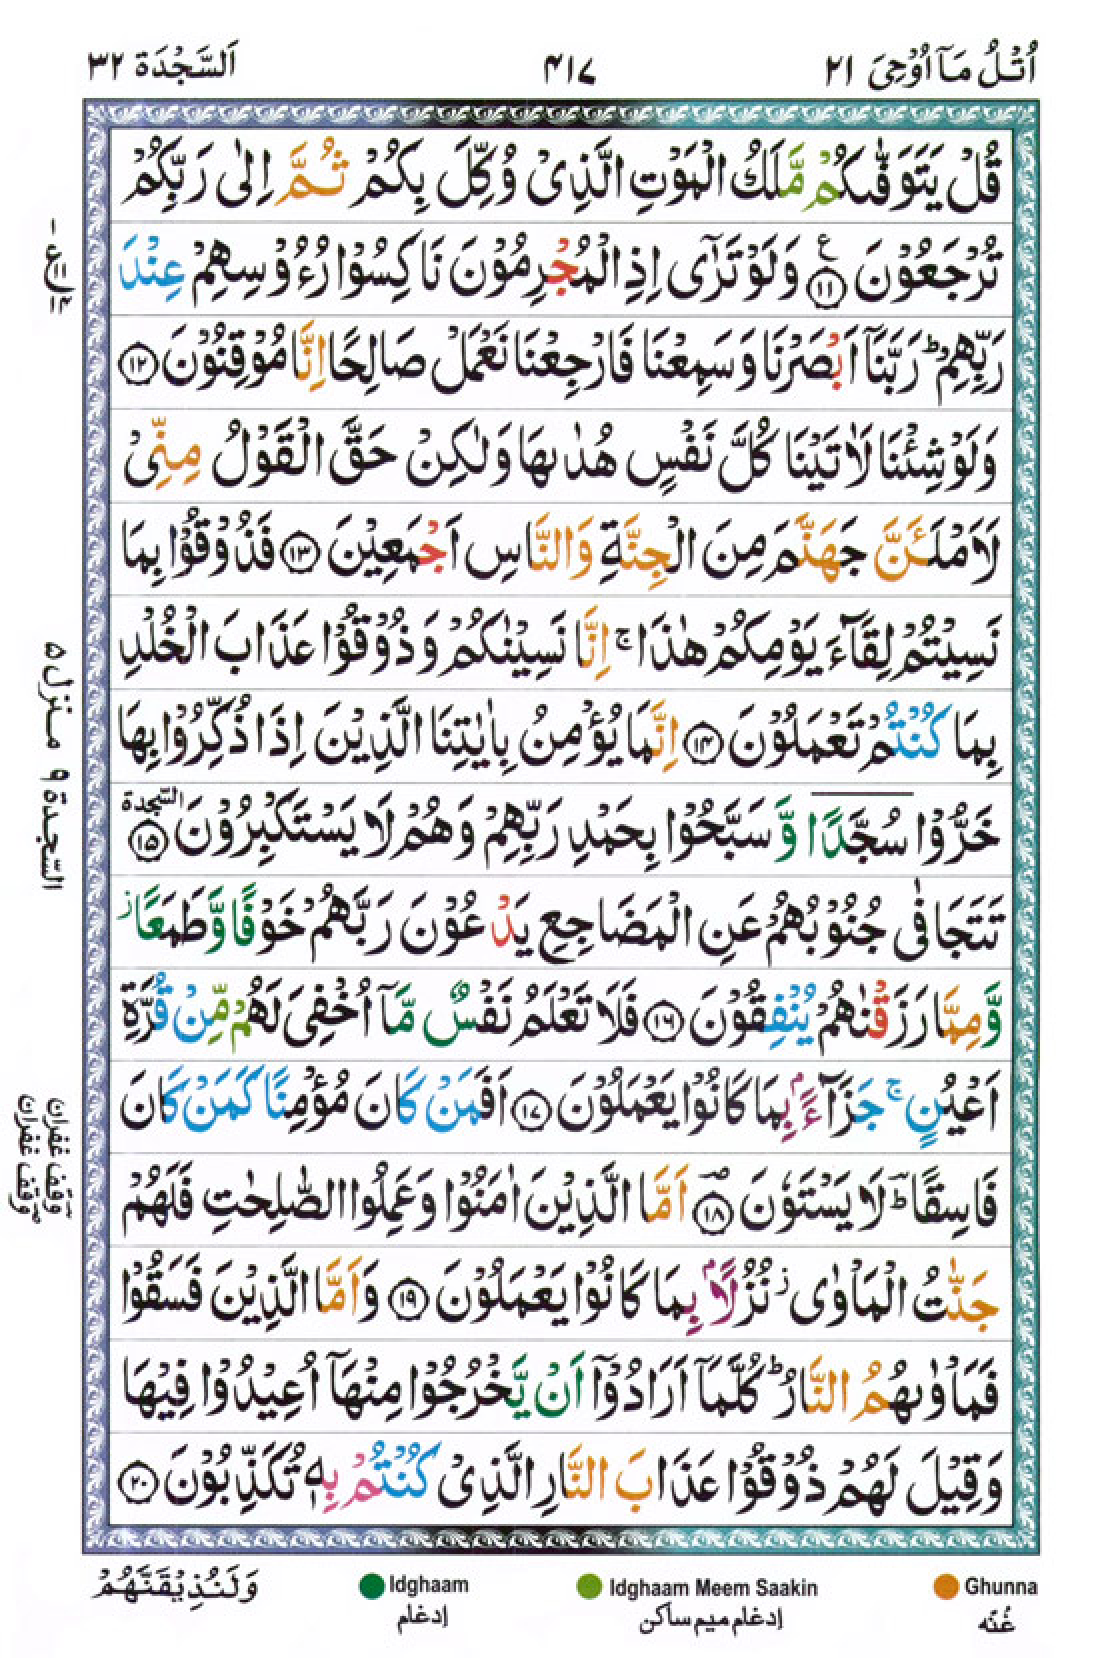 اُتْلُ مَآ اُوْحِیَ ۲۱
۴۱۷
اَلسَّجْدَة ۳۲
قُلْ يَتَوَفّٰىكُمْ مَّلَكُ الْمَوْتِ الَّذِىْ وُكِّلَ بِكُمْ ثُمَّ اِلٰى رَبِّكُمْ
تُرْجَعُوْنَ ۱۱ ع وَلَوْ تَرٰٓى اِذِ الْمُجْرِمُوْنَ نَاكِسُوْا رُءُوْسِهِمْ عِنْدَ
رَبِّهِمْ ؕ رَبَّنَآ اَبْصَرْنَا وَسَمِعْنَا فَارْجِعْنَا نَعْمَلْ صَالِحًا اِنَّا مُوْقِنُوْنَ ۱۲
وَلَوْ شِئْنَا لَاٰتَيْنَا كُلَّ نَفْسٍ هُدٰىهَا وَلٰكِنْ حَقَّ الْقَوْلُ مِنِّىْ
لَاَمْلَئَنَّ جَهَنَّمَ مِنَ الْجِنَّةِ وَالنَّاسِ اَجْمَعِيْنَ ۱۳ فَذُوْقُوْا بِمَا
نَسِيْتُمْ لِقَآءَ يَوْمِكُمْ هٰذَا ۚ اِنَّا نَسِيْنٰكُمْ وَذُوْقُوْا عَذَابَ الْخُلْدِ
بِمَا كُنْتُمْ تَعْمَلُوْنَ ۱۴ اِنَّمَا يُؤْمِنُ بِاٰيٰتِنَا الَّذِيْنَ اِذَا ذُكِّرُوْا بِهَا
خَرُّوْا سُجَّدًا وَّسَبَّحُوْا بِحَمْدِ رَبِّهِمْ وَهُمْ لَا يَسْتَكْبِرُوْنَ ۱۵ السجدة
تَتَجَافٰى جُنُوْبُهُمْ عَنِ الْمَضَاجِعِ يَدْعُوْنَ رَبَّهُمْ خَوْفًا وَّطَمَعًا ز
وَّمِمَّا رَزَقْنٰهُمْ يُنْفِقُوْنَ ۱۶ فَلَا تَعْلَمُ نَفْسٌ مَّآ اُخْفِىَ لَهُمْ مِّنْ قُرَّةِ
اَعْيُنٍ ۚ جَزَآءًۢ بِمَا كَانُوْا يَعْمَلُوْنَ ۱۷ اَفَمَنْ كَانَ مُؤْمِنًا كَمَنْ كَانَ
فَاسِقًا ؕ لَا يَسْتَوٗنَ ۱۸ اَمَّا الَّذِيْنَ اٰمَنُوْا وَعَمِلُوا الصّٰلِحٰتِ فَلَهُمْ
جَنّٰتُ الْمَاْوٰى ز نُزُلًاۢ بِمَا كَانُوْا يَعْمَلُوْنَ ۱۹ وَاَمَّا الَّذِيْنَ فَسَقُوْا
فَمَاْوٰىهُمُ النَّارُ ؕ كُلَّمَآ اَرَادُوْٓا اَنْ يَّخْرُجُوْا مِنْهَآ اُعِيْدُوْا فِيْهَا
وَقِيْلَ لَهُمْ ذُوْقُوْا عَذَابَ النَّارِ الَّذِىْ كُنْتُمْ بِهٖ تُكَذِّبُوْنَ ۲۰
السّجدة ۹ منزل ۵
وَقَف غفران
وَقَف غفران
وَلَنُذِيْقَنَّهُمْ
Idghaam
إدغام
Idghaam Meem Saakin
إدغام ميم ساكن
Ghunna
غُنّه